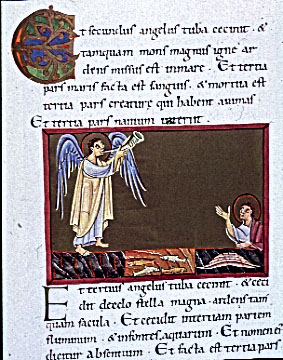 Et secundus angelus tuba cecinit · &
tamquam mons magnus igne ar
dens missus est in mare · Et tertia
pars maris facta est sanguis · & mortua est
tertia pars creature qui habent animas
Et tertia pars navium interiit ·
Et tertius angelus tuba cecinit · & ceci
dit de celo stella magna · ardens tam
quam facula · Et cecidit in tertiam partem
fluminum · & in fontes aquarum · Et nomen
dicitur absentium · Et tertia pars